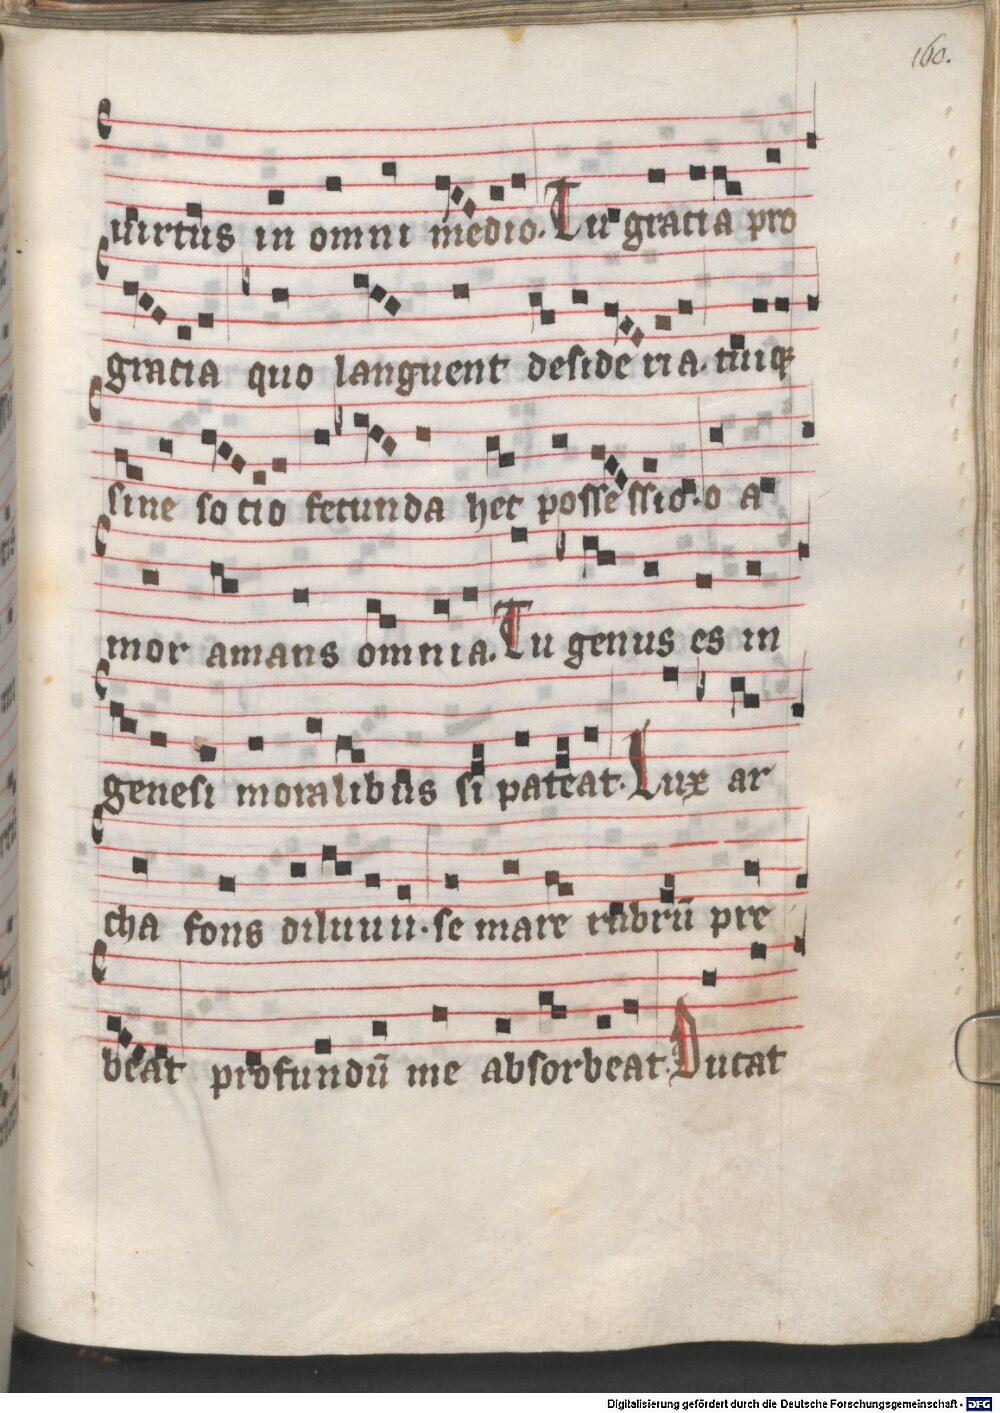 160.
uirtus in omni medio. Tu gracia pro
gracia quo languent desideria. tuiqꝫ
sine socio fecunda hec possessio. o a
mor amans omnia. Tu genus es in
genesi moralibus si pateat. Lux ar
cha fons diluuii. se mare rubrū pre
beat profundū me absorbeat. Ducat
Digitalisierung gefördert durch die Deutsche Forschungsgemeinschaft - DFG